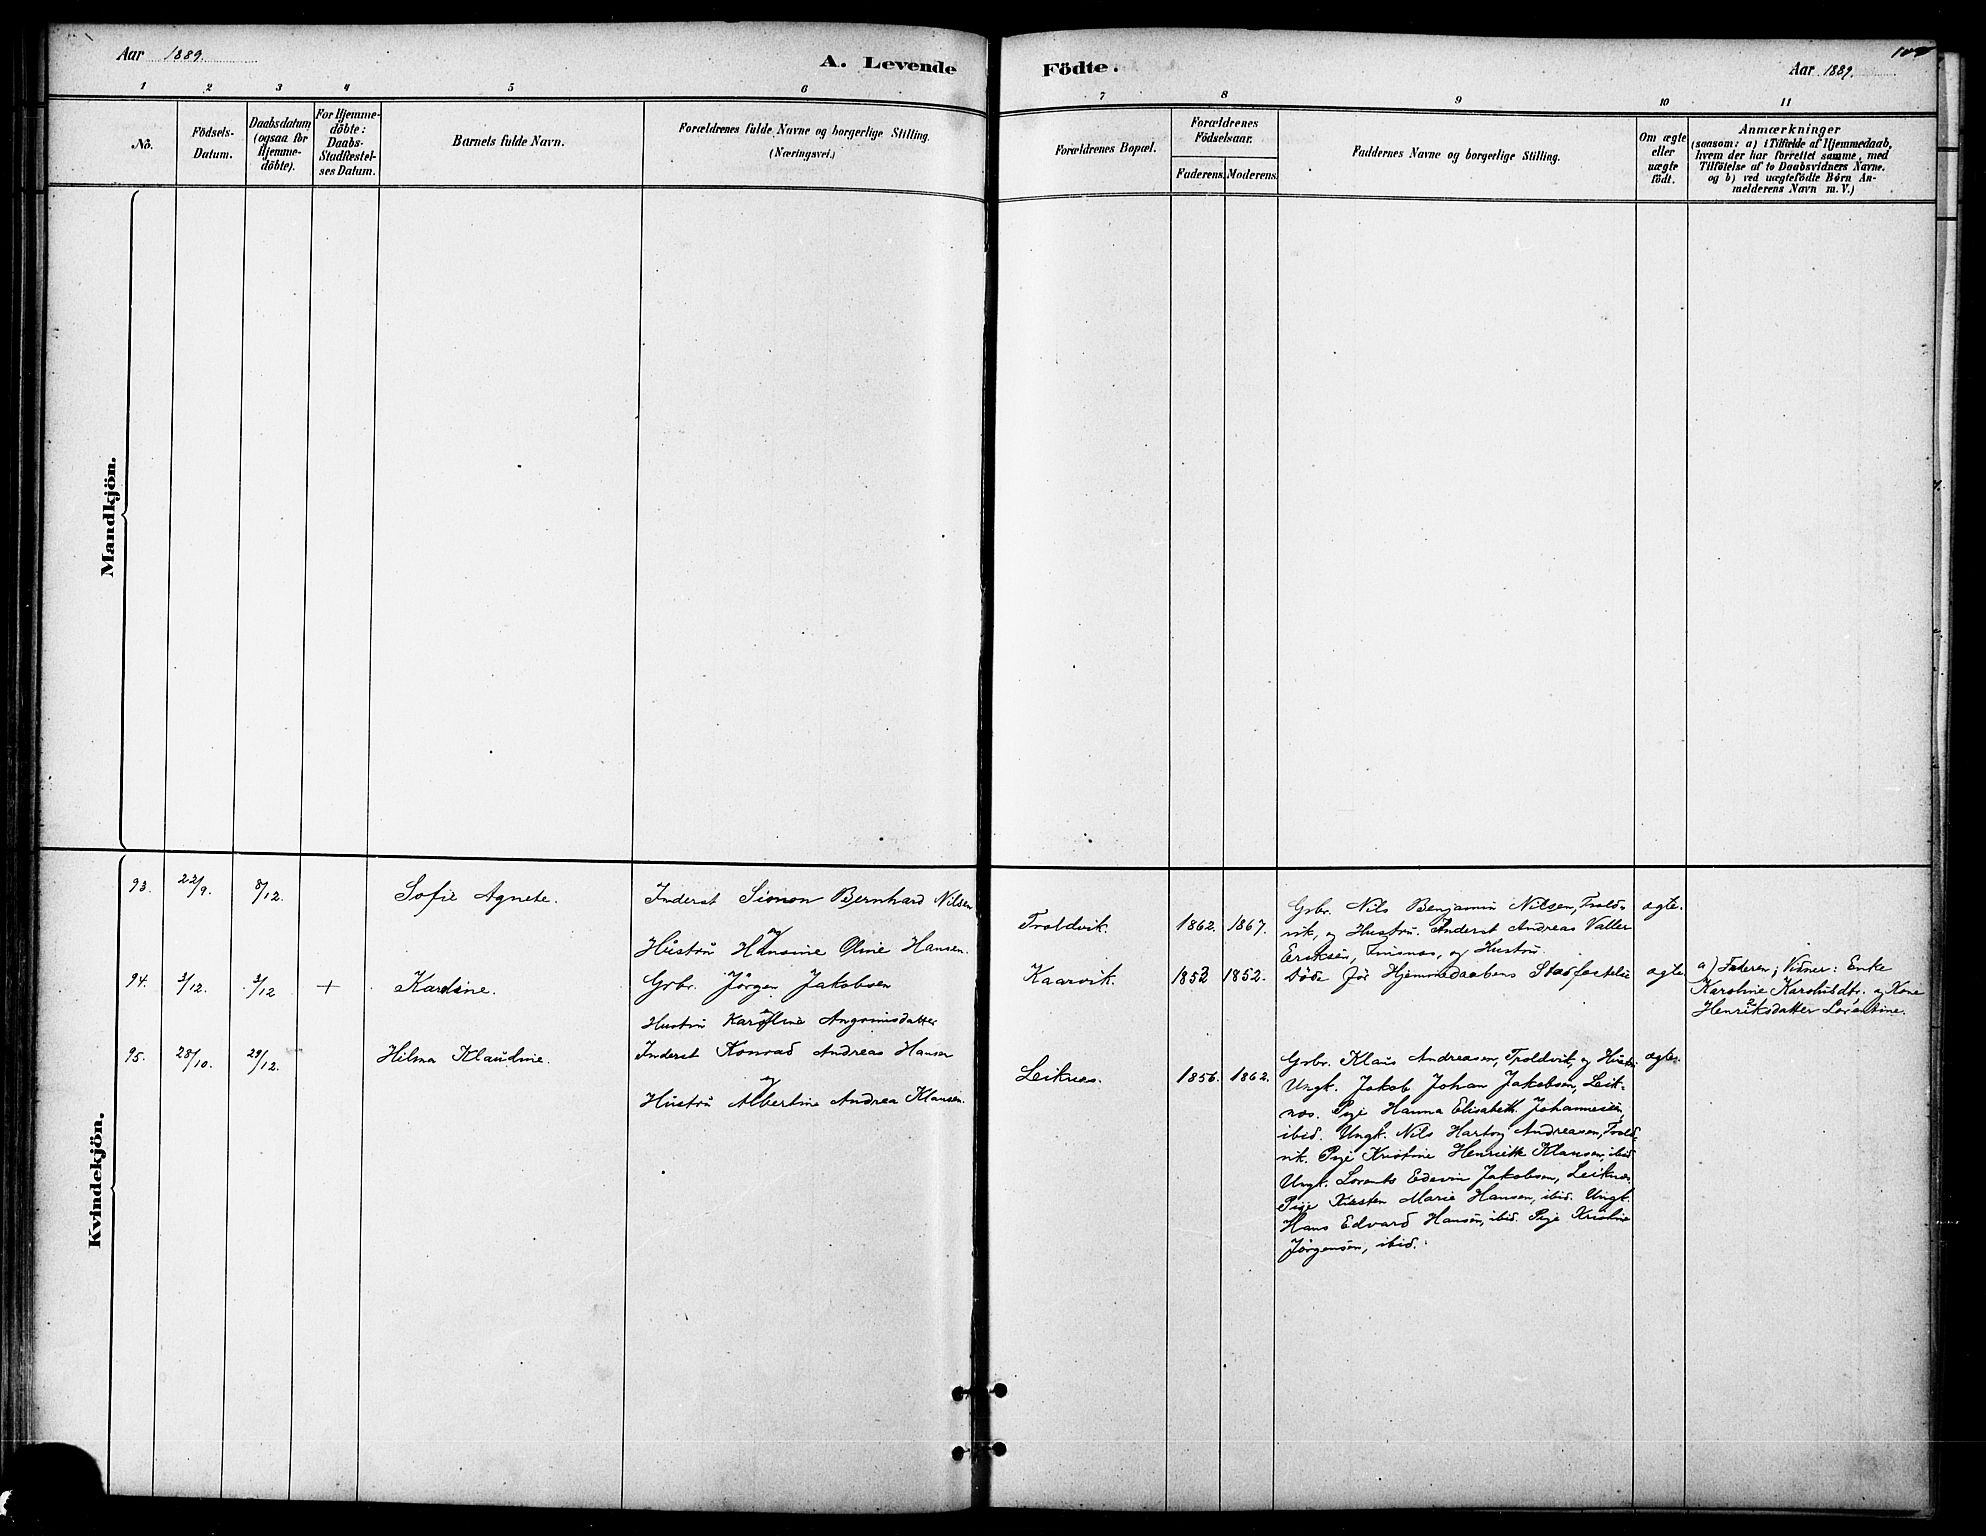 Aar 1889.
A. Levende
Födte.
Aar 1889.
1 2 3 4 5 6 7 8 9 10 11
No.
Födsels-
Datum.
Daabsdatum
(ogsaa for
Hjemme-
döbte).
For Hjemme-
döbte:
Daabs-
Stadfæstel-
ses Datum.
Barnets fulde Navn.
Forældrenes fulde Navne og borgerlige Stilling.
(Næringsvei.)
Forældrenes Bopæl.
Forældrenes
Födselsaar.
Faderens. Moderens.
Faddernes Navne og borgerlige Stilling.
Om ægte
eller
uægte
födt.
Anmærkninger
(saasom: a) i Tilfælde af Hjemmedaab,
hvem der har forrettet samme, med
Tilföielse af to Daabsvidners Navne.
og b) ved uægtefödte Børn An-
melderens Navn m. V.)
Mandkjön.
Kvindekjön.
93. 22/9. 8/12. Sofie Agnete.
Inderst Simon Bernhard Nilsen
og
Hustru Hansine Oline Hansen.
Troldvik. 1862. 1867.
Grbr. Nils Benjamin Nilsen, Trold-
vik, og Hustru. Inderst Andreas Valler
Eriksen, og Hustru.
ægte.
94. 3/12. 3/12 + Karoline.
Grbr. Jörgen Jakobsen
og
Hustru Karoline
Kaarvik. 1853 1852.
Döde för Hjemmedaabens Stadfæstelse
ægte
a) Faderen; Vidner: Enke
Karoline og Kone
Henriksdatter Lorentine.
95. 28/10. 29/12. Hilma Klaudine.
Inderst Konrad Andreas Hansen
og
Hustru Albertine Andrea Klausen.
Leiknes. 1856. 1862.
Grbr. Klaus Andreasen, Troldvik, og Hustru
Ungk. Jakob Johan Jakobsen, Leik-
nes. Pige Hanna Elisabeth Johannesen,
ibid. Ungk. Nils Hartog Andreasen, Trold-
vik. Pige Kristine Henriette Klausen, ibid
Ungk. Lorents Edevin Jakobsen, Leiknes
Pige Kirsten Marie Hansen, ibid. Ungk.
Hans Edvard Hansen, ibid. Pige Kristine
Jörgensen, ibid.
ægte.